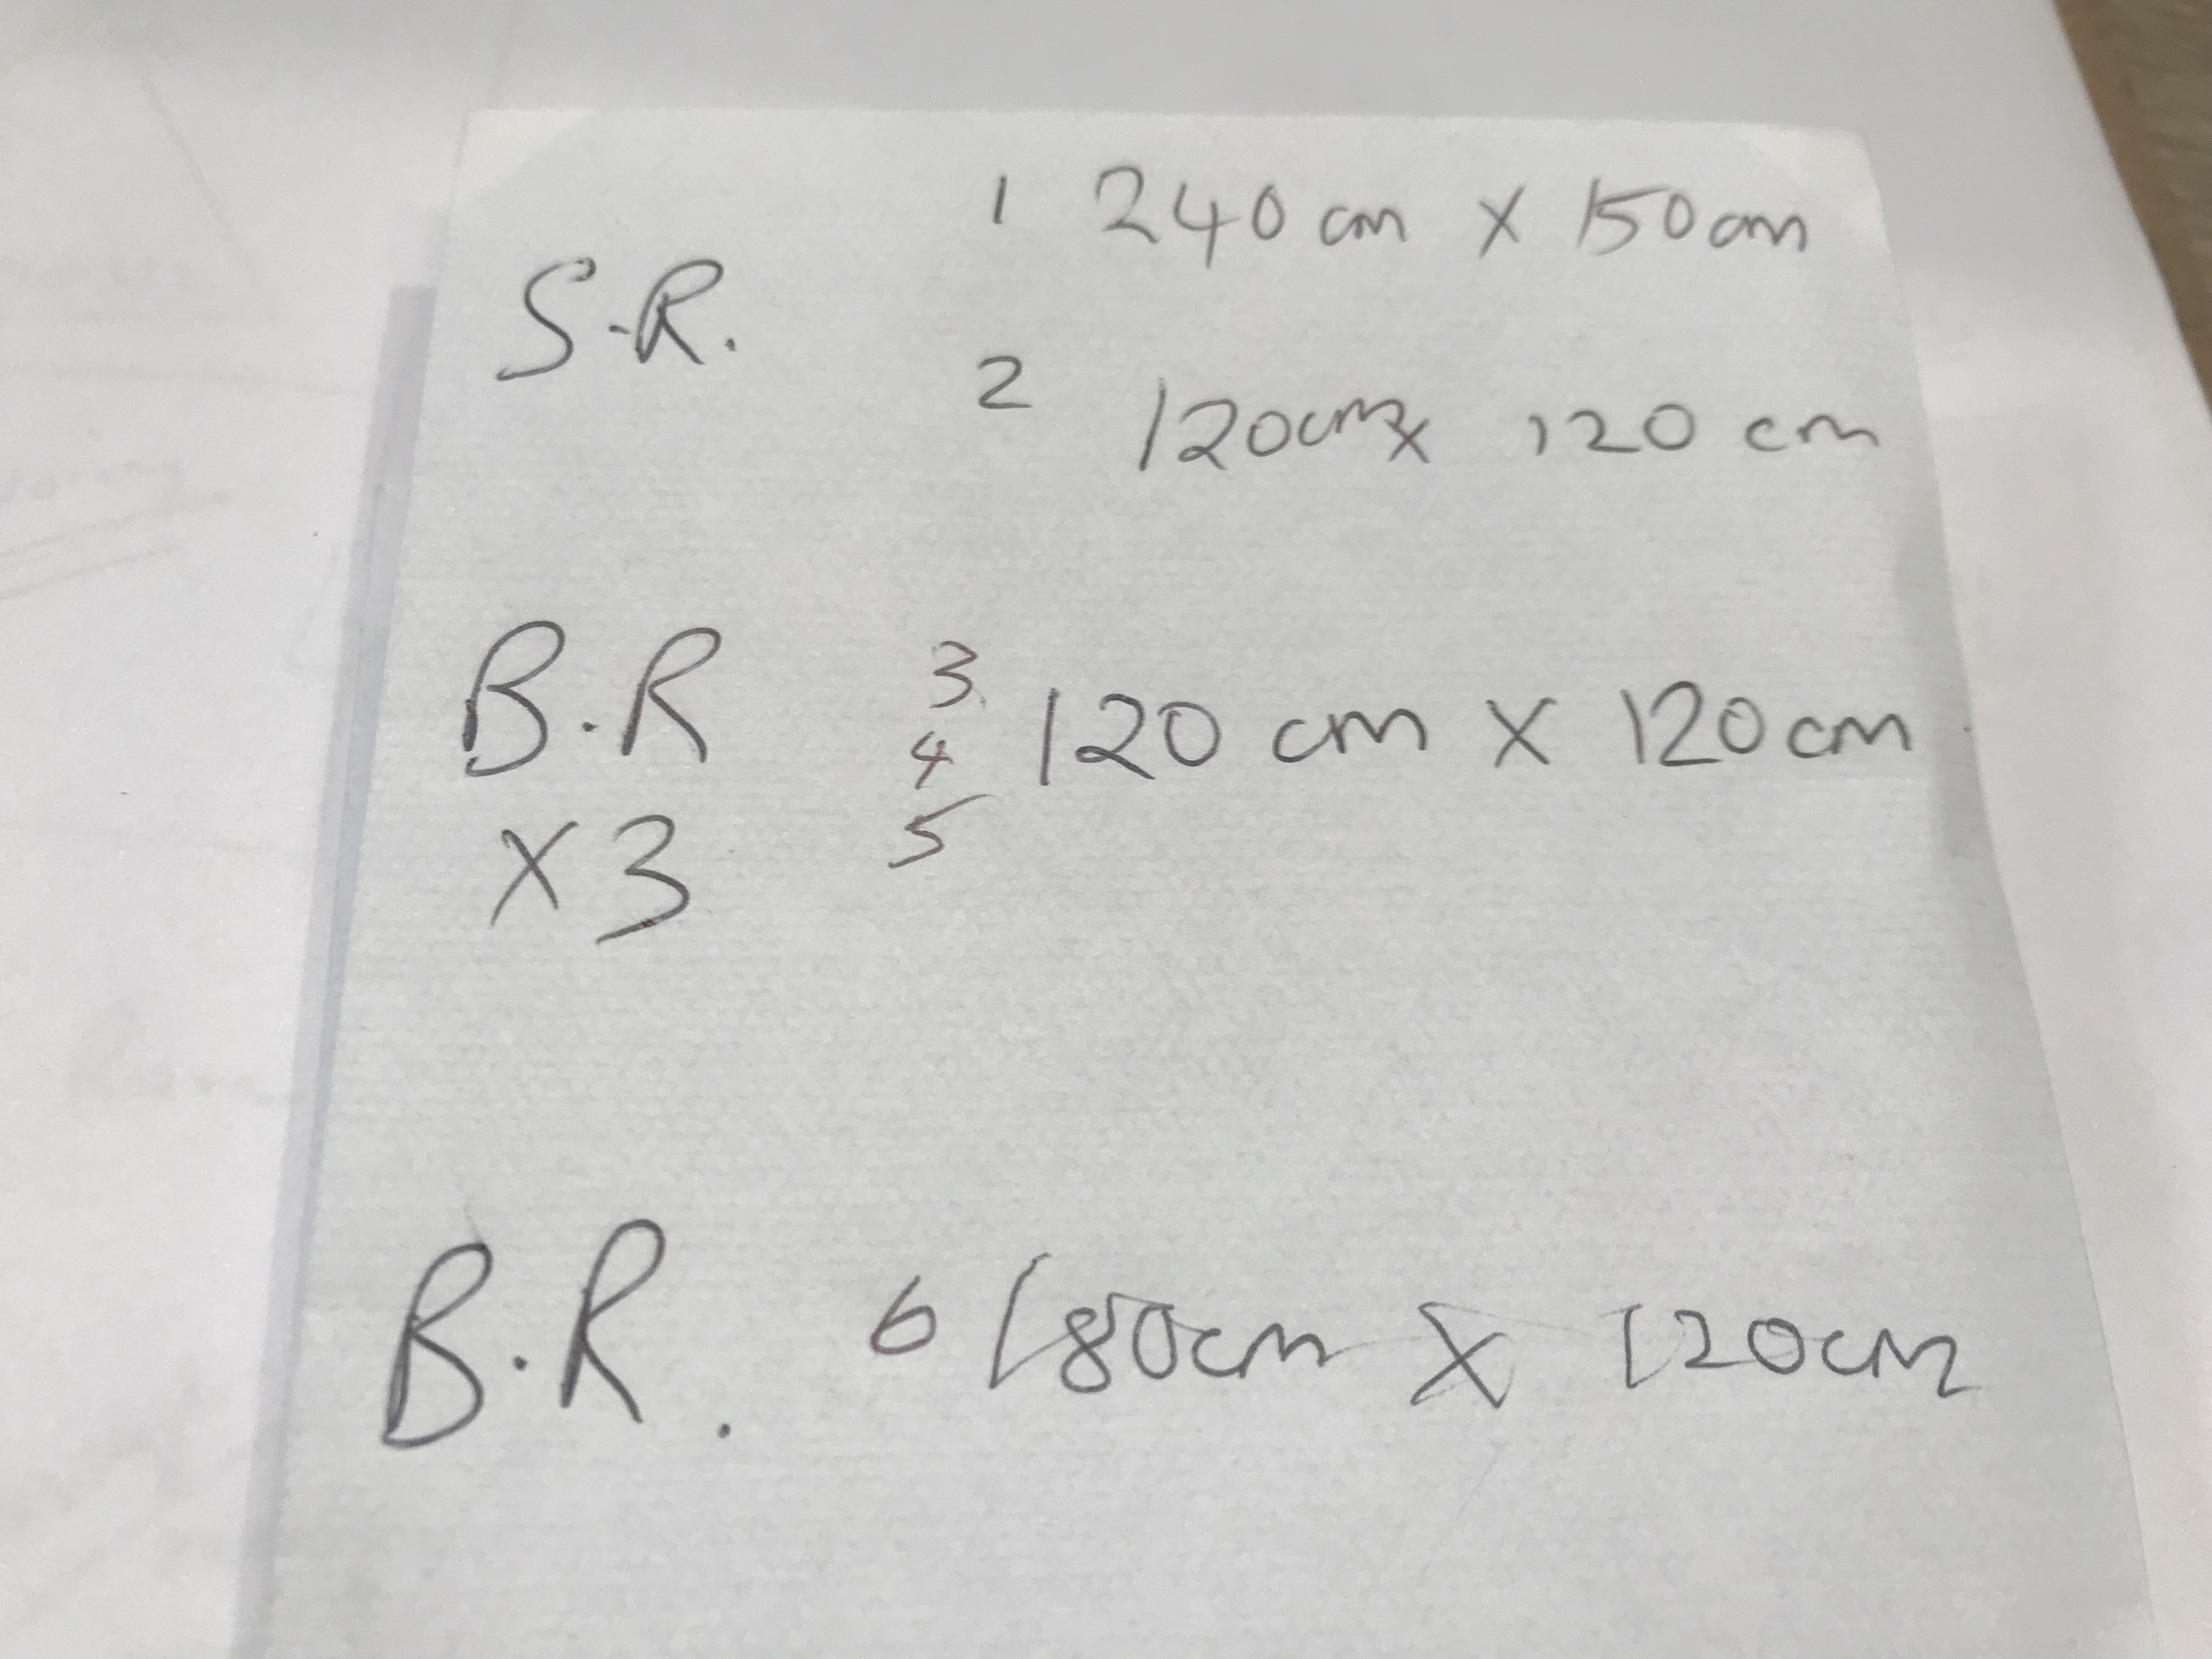 1 240cm x 150cm
S.R.
2 120cm x 120cm
B.R 3 120cm x 120cm
4
x3 5
B.R. 6 180cm x 120cm